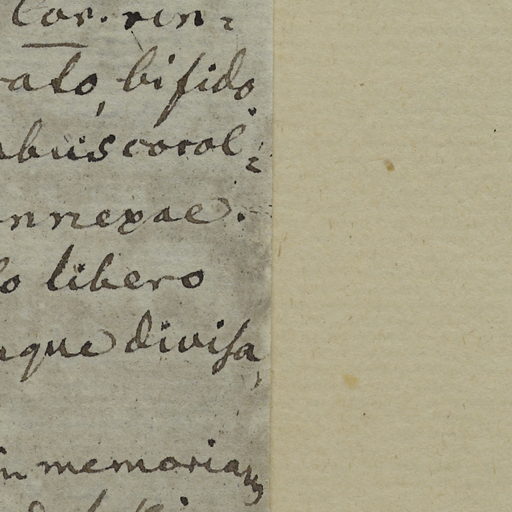 Cor. rin-
ato, bifido
bus corol-
nnexae.
lo libero
que divisa,
in memoriam